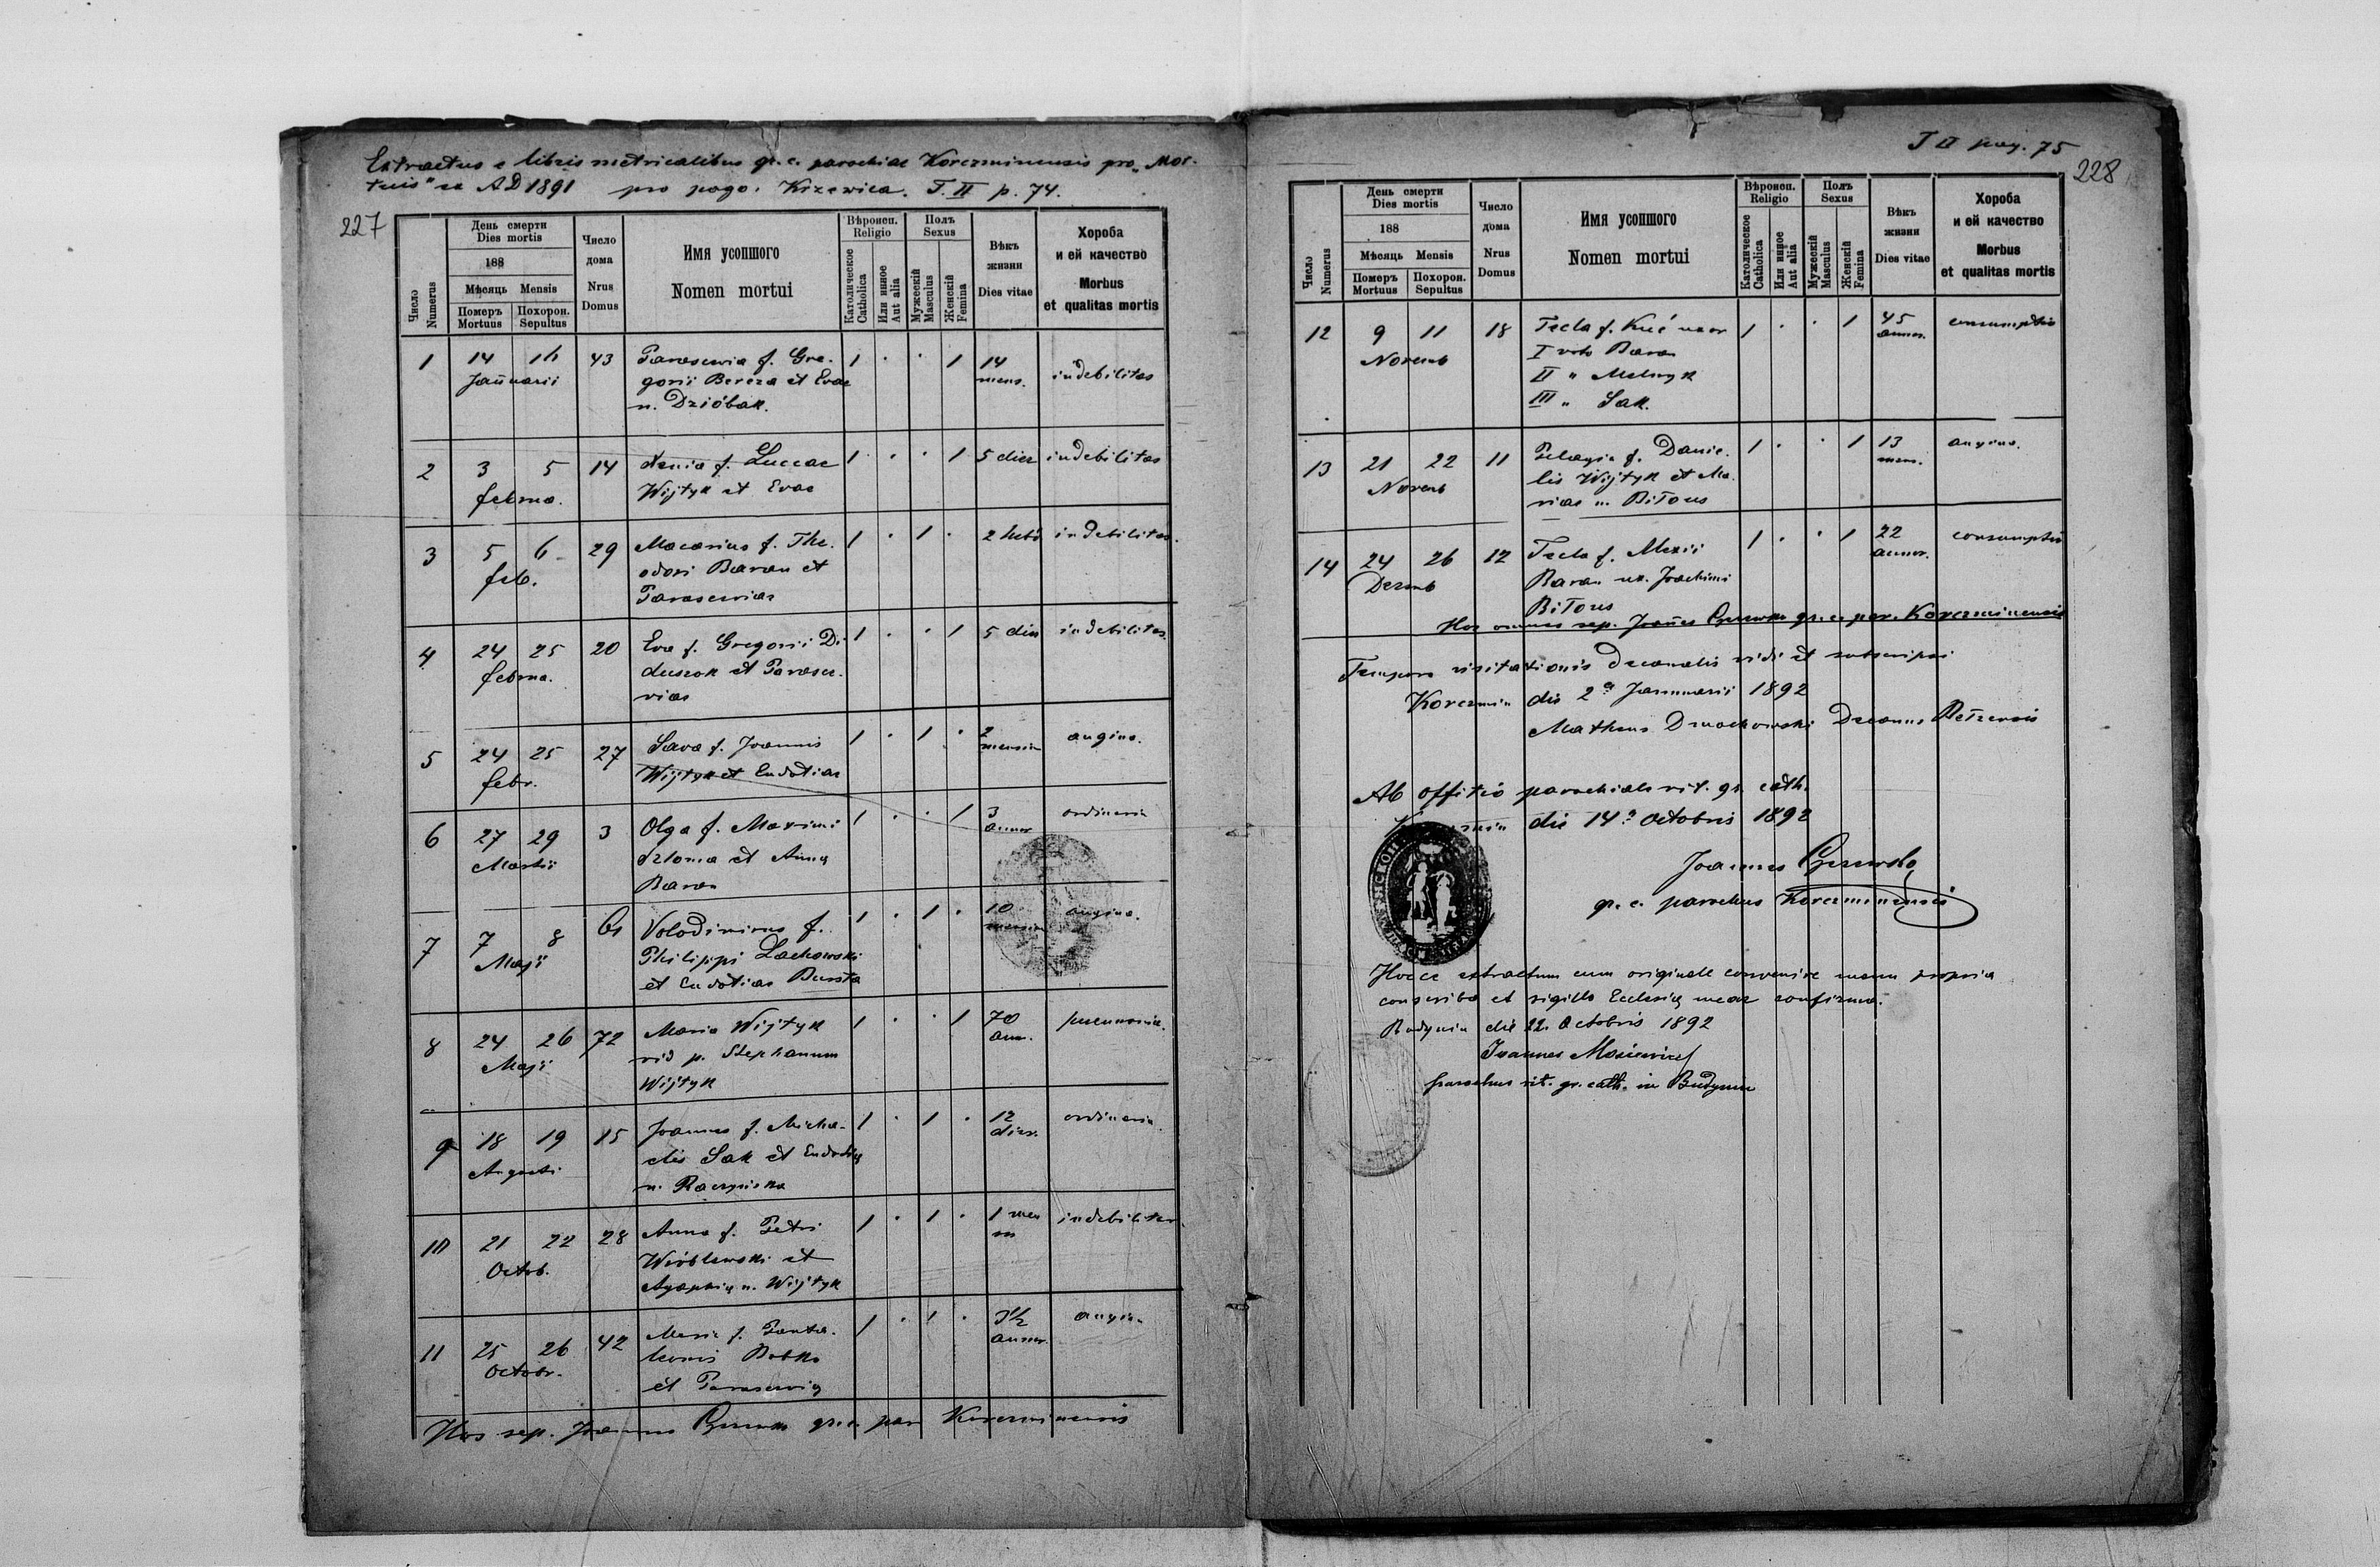 Extractus e libris metricalibus gr. c. parochiae Korczminensis pro „Mor-
tuis" ex AD 1891 pro pago. Krzewica. T. II p. 74.
227
Число Numerus
День смерти Dies mortis
188
Мѣсяць Mensis
Померъ Mortuus
Похорон. Sepultus
Число дома Nrus Domus
Имя усопшого Nomen mortui
Вѣроисп. Religio
Католическое Catholica
Или инное Aut alia
Полъ Sexus
Мужескій Masculus
Женскій Femina
Вѣкъ жизни Dies vitae
Хороба и ей качество Morbus et qualitas mortis
1 14 16 43 Parascevia f. Gre- 1 . . 1 14
Januarii gorii Bereza et Evae mens. indebilitas
n. Dzióbak.
2 3 5 14 Xenia f. Luccae 1 . . 1 5 dier indebilitas
februa. Wijtyk et Evae
3 5 6 29 Macarius f. The- 1 . 1 . 2 hebd indebilitas.
feb. odori Baran et
Parasceviae
4 24 25 20 Eva f. Gregorii Di 1 . . 1 5 dier indebilitas
februa. duszok et Parasce-
viae
5 24 25 27 Sava f. Joannis 1 . 1 . 2 angina.
febr. Wijtyk et Eudotiae mensium
6 27 29 3 Olga f. Maximi 1 . . 1 3 ordinaria
Martii et Annę annor
Baran
7 7 8 61 Volodimirus f. 1 . 1 . 10 angina.
Maji Philippi Lachowski mensium
et Eudotiae Bursta
8 24 26 72 Maria Wijtyk 1 . . 1 70 pneumonia.
Maji vid p. Stephanum ann.
Wijtyk
9 18 19 15 Joannes f. Micha- 1 . 1 . 12 ordinaria.
Augusti elis Sak et Eudotię dier.
n.
10 21 22 28 Anna f. Petri 1 . 1 . 1 men indebilitas.
Octob. Wróblewski et
Agaphię n. Wijtyk
11 25 26 42 Maria f. Panta- 1 . 1 . 3½ angina
Octobr. leonis Bobko annor.
et Parascevię
Hos sep. Joannes gr. c. par Korczminensis
T II pag. 75
228
Число Numerus
День смерти Dies mortis
188
Мѣсяць Mensis
Померъ Mortuus
Похорон. Sepultus
Число дома Nrus Domus
Имя усопшого Nomen mortui
Вѣроисп. Religio
Католическое Catholica
Или инное Aut alia
Полъ Sexus
Мужескій Masculus
Женскій Femina
Вѣкъ жизни Dies vitae
Хороба и ей качество Morbus et qualitas mortis
12 9 11 18 Tecla f. Kuć uxor 1 . . 1 45 consumptio
Novemb I voto Baran annor.
II „ Melnyk
III „ Sak.
13 21 22 11 Pelagia f. Danie- 1 . . 1 13 angina.
Novemb lis Wijtyk et Ma- men.
riae n. Biłous
14 24 26 12 Tecla f. Alexii 1 . . 1 22 consumptio
Dezmb Baran ux. Joachimi annor.
Biłous
Hos omnes sep. Joannes gr. c. par. Korczminensis
Tempore visitationis decanalis vidi et subscripsi
Korczmin die 2ª Jannuarii 1892
Matheus Decanus Bełzensis
Ab offitio parochiale rit. gr. cath.
die 14ª Octobris 1892
Joannes
gr. c. parochus Korczminensis
Hocce extractum cum originale convenire manu propria
conscribo et sigillo Ecclesię meae confirmo.
Budynin die 22. Octobris 1892
Joannes
parochus rit. gr. cath. in Budynin